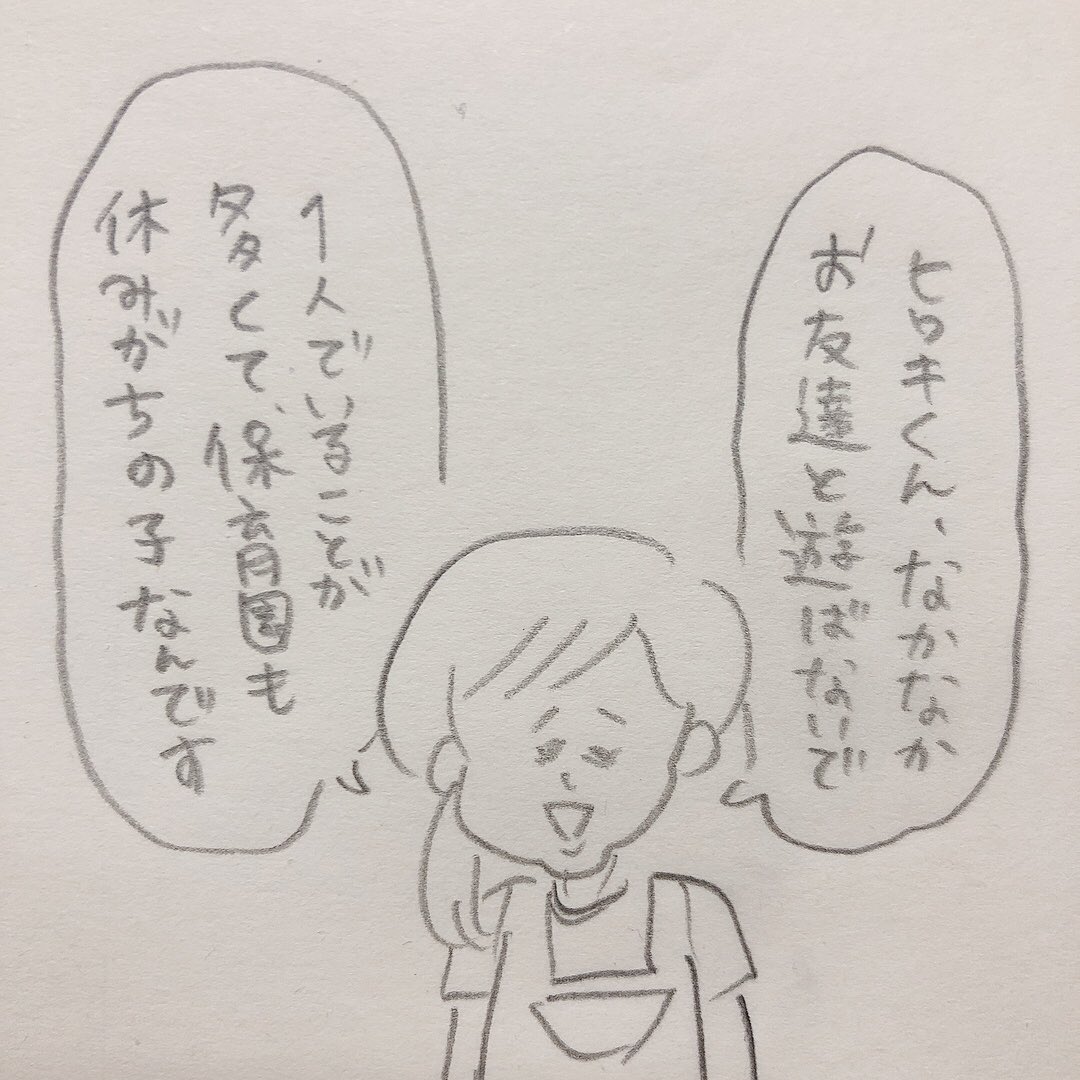 ヒロキくん、なかなか
お友達と遊ばないで
1人でいることが
多くて、保育園も
休みがちの子なんです